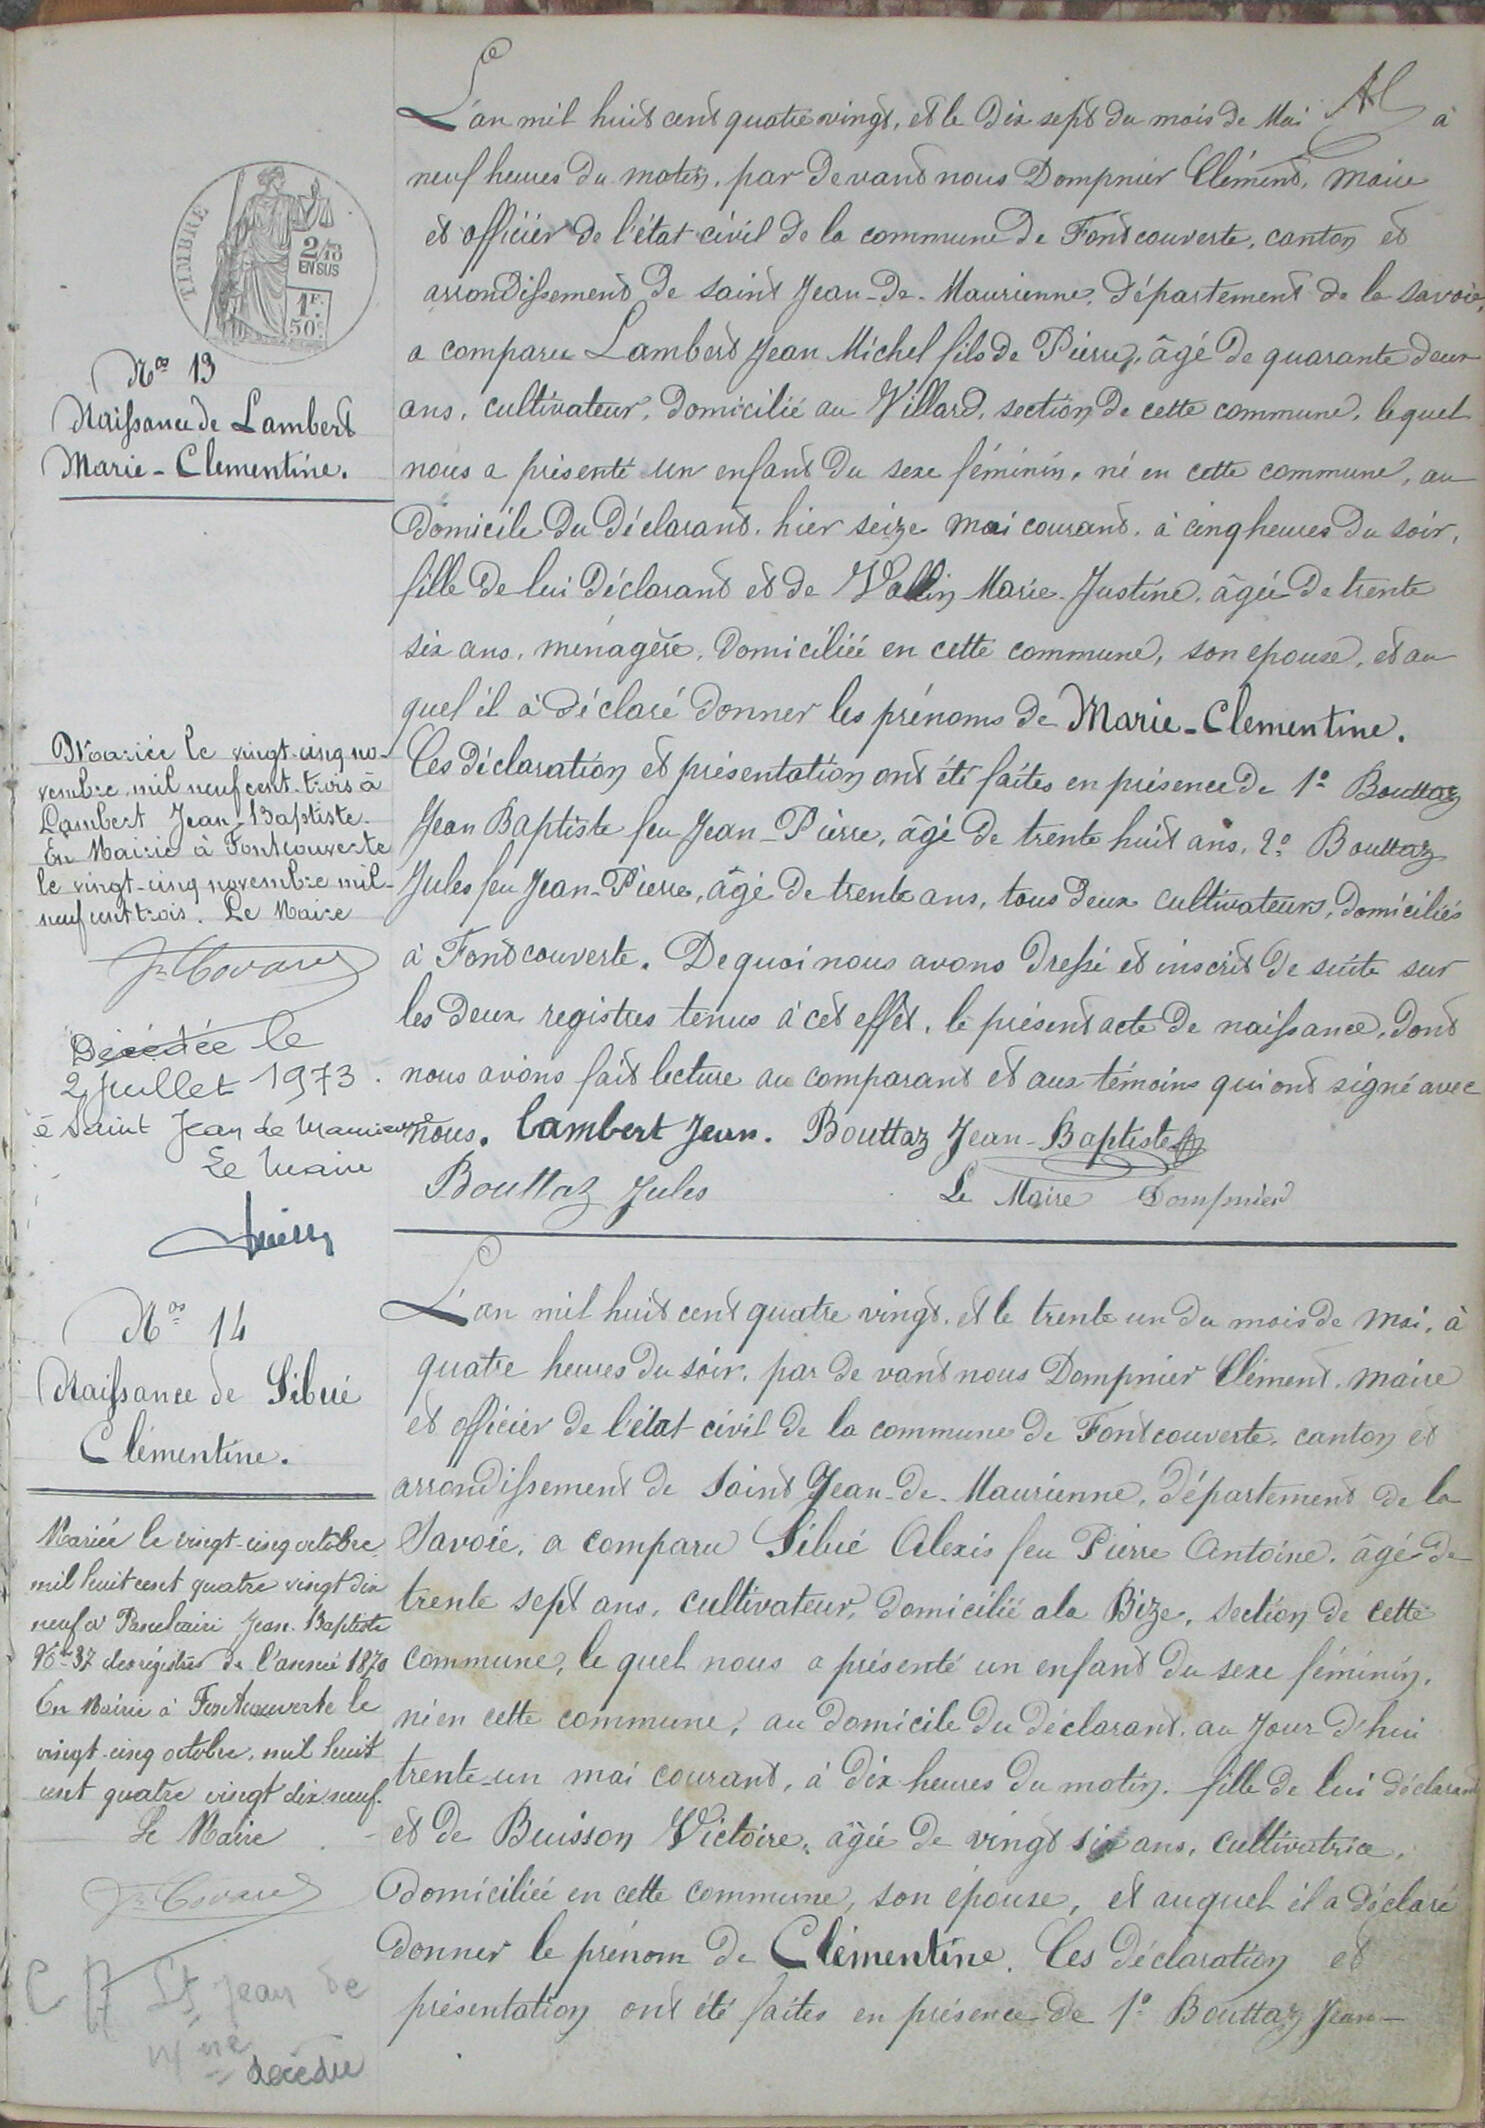 TIMBRE
2/10
EN SUS
1F.
50c.
Nos 13
Naissance de Lambert
Marie-Clementine.
L'an mil huit cent quatre vingt, et le dix sept du mois de Mai à
neuf heures du matin, par devant nous Dompnier Clément, maire
et officier de l'état civil de la commune de Fontcouverte, canton et
arrondissement de saint Jean-de-Maurienne, département de la Savoie,
a comparu Lambert Jean Michel fils de Pierre, âgé de quarante deux
ans, cultivateur, domicilié au Villard, section de cette commune, lequel
nous a présenté un enfant du sexe féminin, né en cette commune, au
domicile du déclarant, hier seize mai courant, à cinq heures du soir,
fille de lui déclarant et de Vallin Marie-Justine, âgée de trente
six ans, ménagère, domiciliée en cette commune, son epouse, et au
quel il à déclaré donner les prénoms de Marie-Clementine.
Ces déclaration et présentation ont été faites en présence de 1o Bouttaz
Jean Baptiste feu Jean-Pierre, âgé de trente huit ans, 2o Bouttaz
Jules feu Jean-Pierre, âgé de trente ans, tous deux cultivateurs, domiciliés
à Fontcouverte. De quoi nous avons dressé et inscrit de suite sur
les deux registres tenus à cet effet, le présent acte de naissance, dont
nous avons fait lecture au comparant et aux témoins qui ont signé avec
nous. Lambert Jean. Bouttaz Jean-Baptiste
Bouttaz Jules Le Maire Dompnier
Mariée le vingt-cinq no-
vembre mil neuf cent-trois à
Lambert Jean-Baptiste.
En Mairie à Fontcouverte
le vingt-cinq novembre mil-
neuf cent trois. Le Maire
Décédée le
2 Juillet 1973.
à Saint Jean de Maurienne
Le Maire
Nos 14
Naissance de Sibué
Clémentine.
L'an mil huit cent quatre vingt, et le trente un du mois de mai, à
quatre heures du soir, par de vant nous Dompnier Clément, maire
et officier de l'état civil de la commune de Fontcouverte, canton et
arrondissement de Saint Jean-de-Maurienne, département de la
Savoie, a comparu Sibué Alexis feu Pierre Antoine, âgé de
trente sept ans, cultivateur, domicilié a la Bize, section de cette
commune, le quel nous a présenté un enfant du sexe féminin,
né en cette commune, au domicile du déclarant, au jour d'hui
trente-un mai courant, à dix heures du matin, fille de lui déclarant
et de Buisson Victoire, âgée de vingt six ans, cultivatrice,
domiciliée en cette commune, son épouse, et auquel il a déclaré
donner le prénom de Clémentine. Ces déclaration et
présentation ont été faites en présence de 1o Bouttaz Jean-
Mariée le vingt-cinq octobre
mil huit cent quatre vingt dix
neuf à Jean-Baptiste
No 37 des régistres de l'année 1870
En Mairie à Fontcouverte le
vingt-cinq octobre, mil huit
cent quatre vingt dix neuf.
Le Maire
St Jean de
Mne
décédée